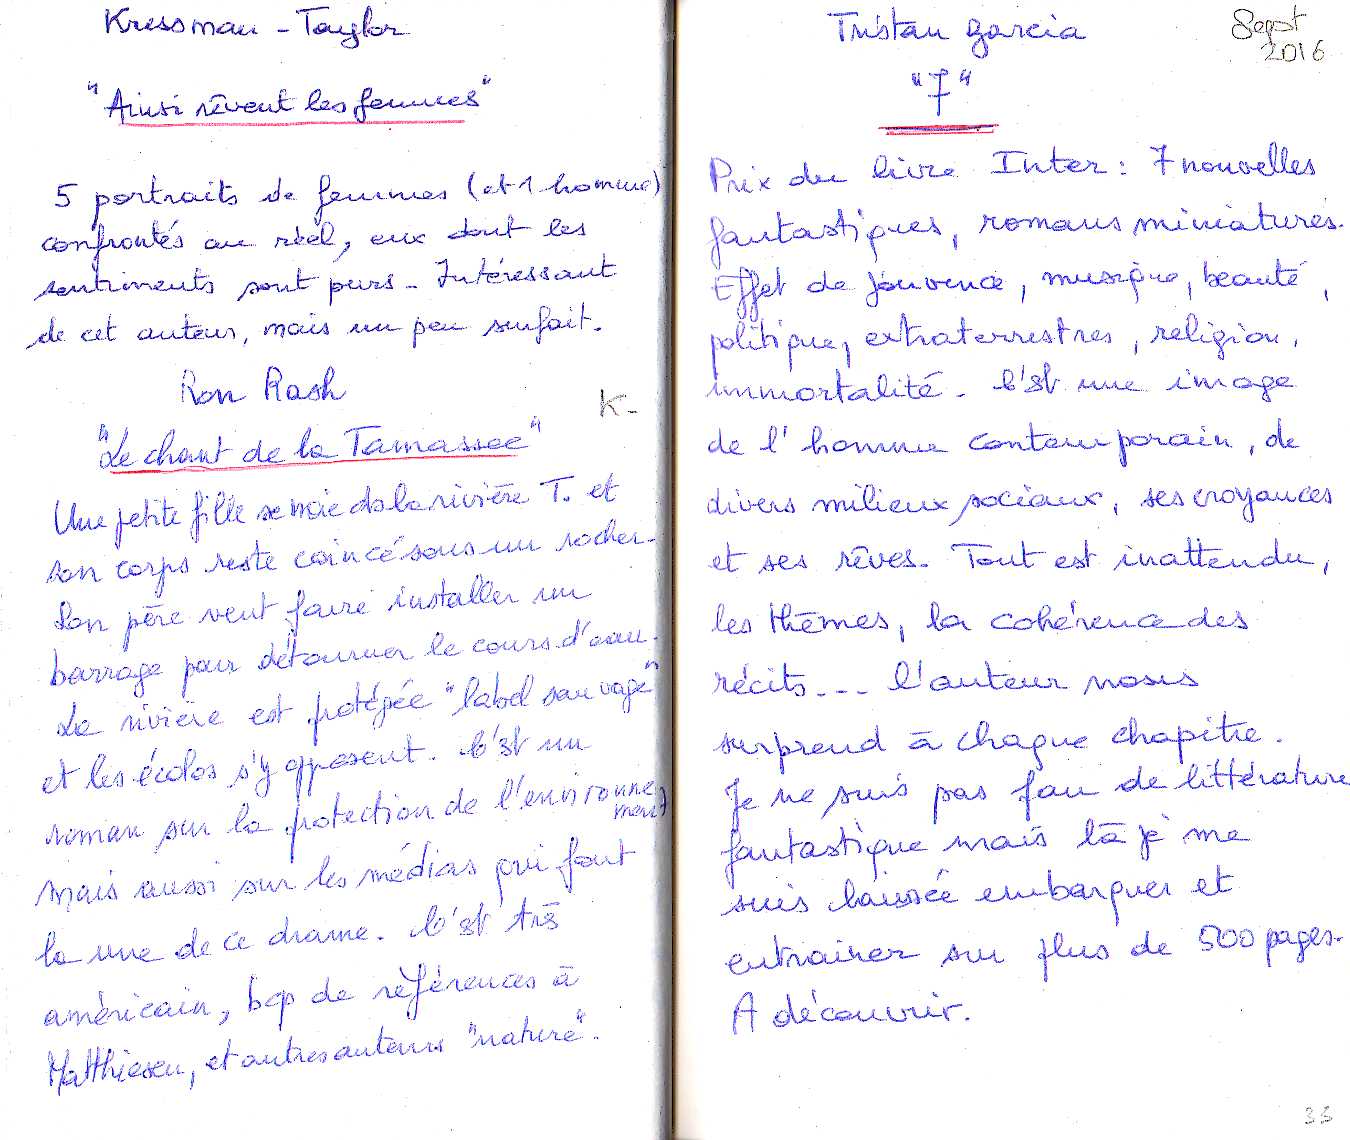 Kressman - Taylor
"Ainsi rêvent les femmes"
5 portraits de femmes (et 1 homme)
confrontés au réel, eux dont les
sentiments sont purs - Intéressant
de cet auteur, mais un peu surfait.
Ron Rash
K -
"Le chant de la Tamassee"
Une petite fille se noie ds la rivière T. et
son corps reste coincé sous un rocher -
Son père veut faire installer un
barrage pour détourner le cours d'eau.
La rivière est protégée "label sauvage"
et les écolos s'y opposent. C'st un
roman sur la protection de l'environne
ment
mais aussi sur les médias qui font
la une de ce drame. C'st très
américain, bcp de références à
Matthiesen, et autres auteurs "nature".
Tristan Garcia
Sept
2016
"7"
Prix du livre Inter : 7 nouvelles
fantastiques, romans miniatures.
Effet de jouvence, musique, beauté,
politique, extraterrestres, religion,
immortalité. C'st une image
de l'homme contemporain, de
divers milieux sociaux, ses croyances
et ses rêves. Tout est inattendu,
les thèmes, la cohérence des
récits --- L'auteur nous
surprend à chaque chapitre.
Je ne suis pas fan de littérature
fantastique mais là je me
suis laissée embarquer et
entrainer sur plus de 500 pages.
A découvrir.
33